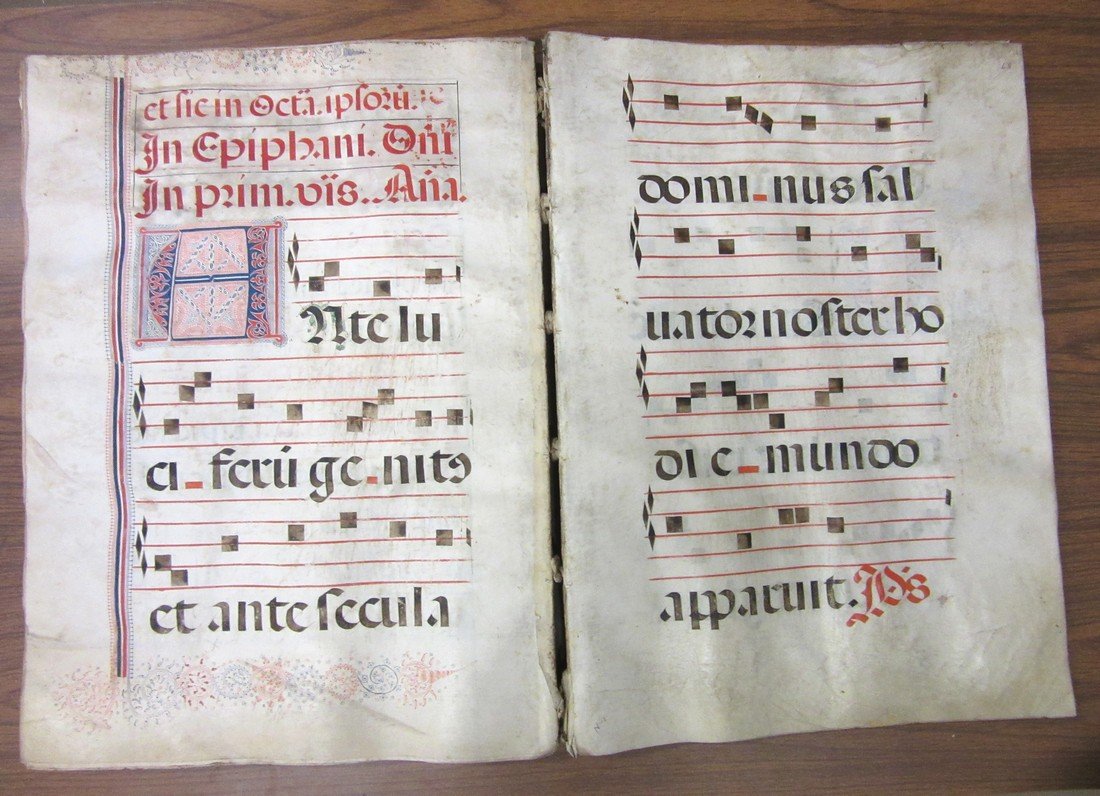 et sic in Octā. ipsorū.
In Epiphani. Dn̄i
In prim. vīs. An̄a.
ANte lu
ci_ferū ge_nitꝰ
et ante secula
domi_nus sal
uator noster ho
di e_mundo
apparuit. Ps̄